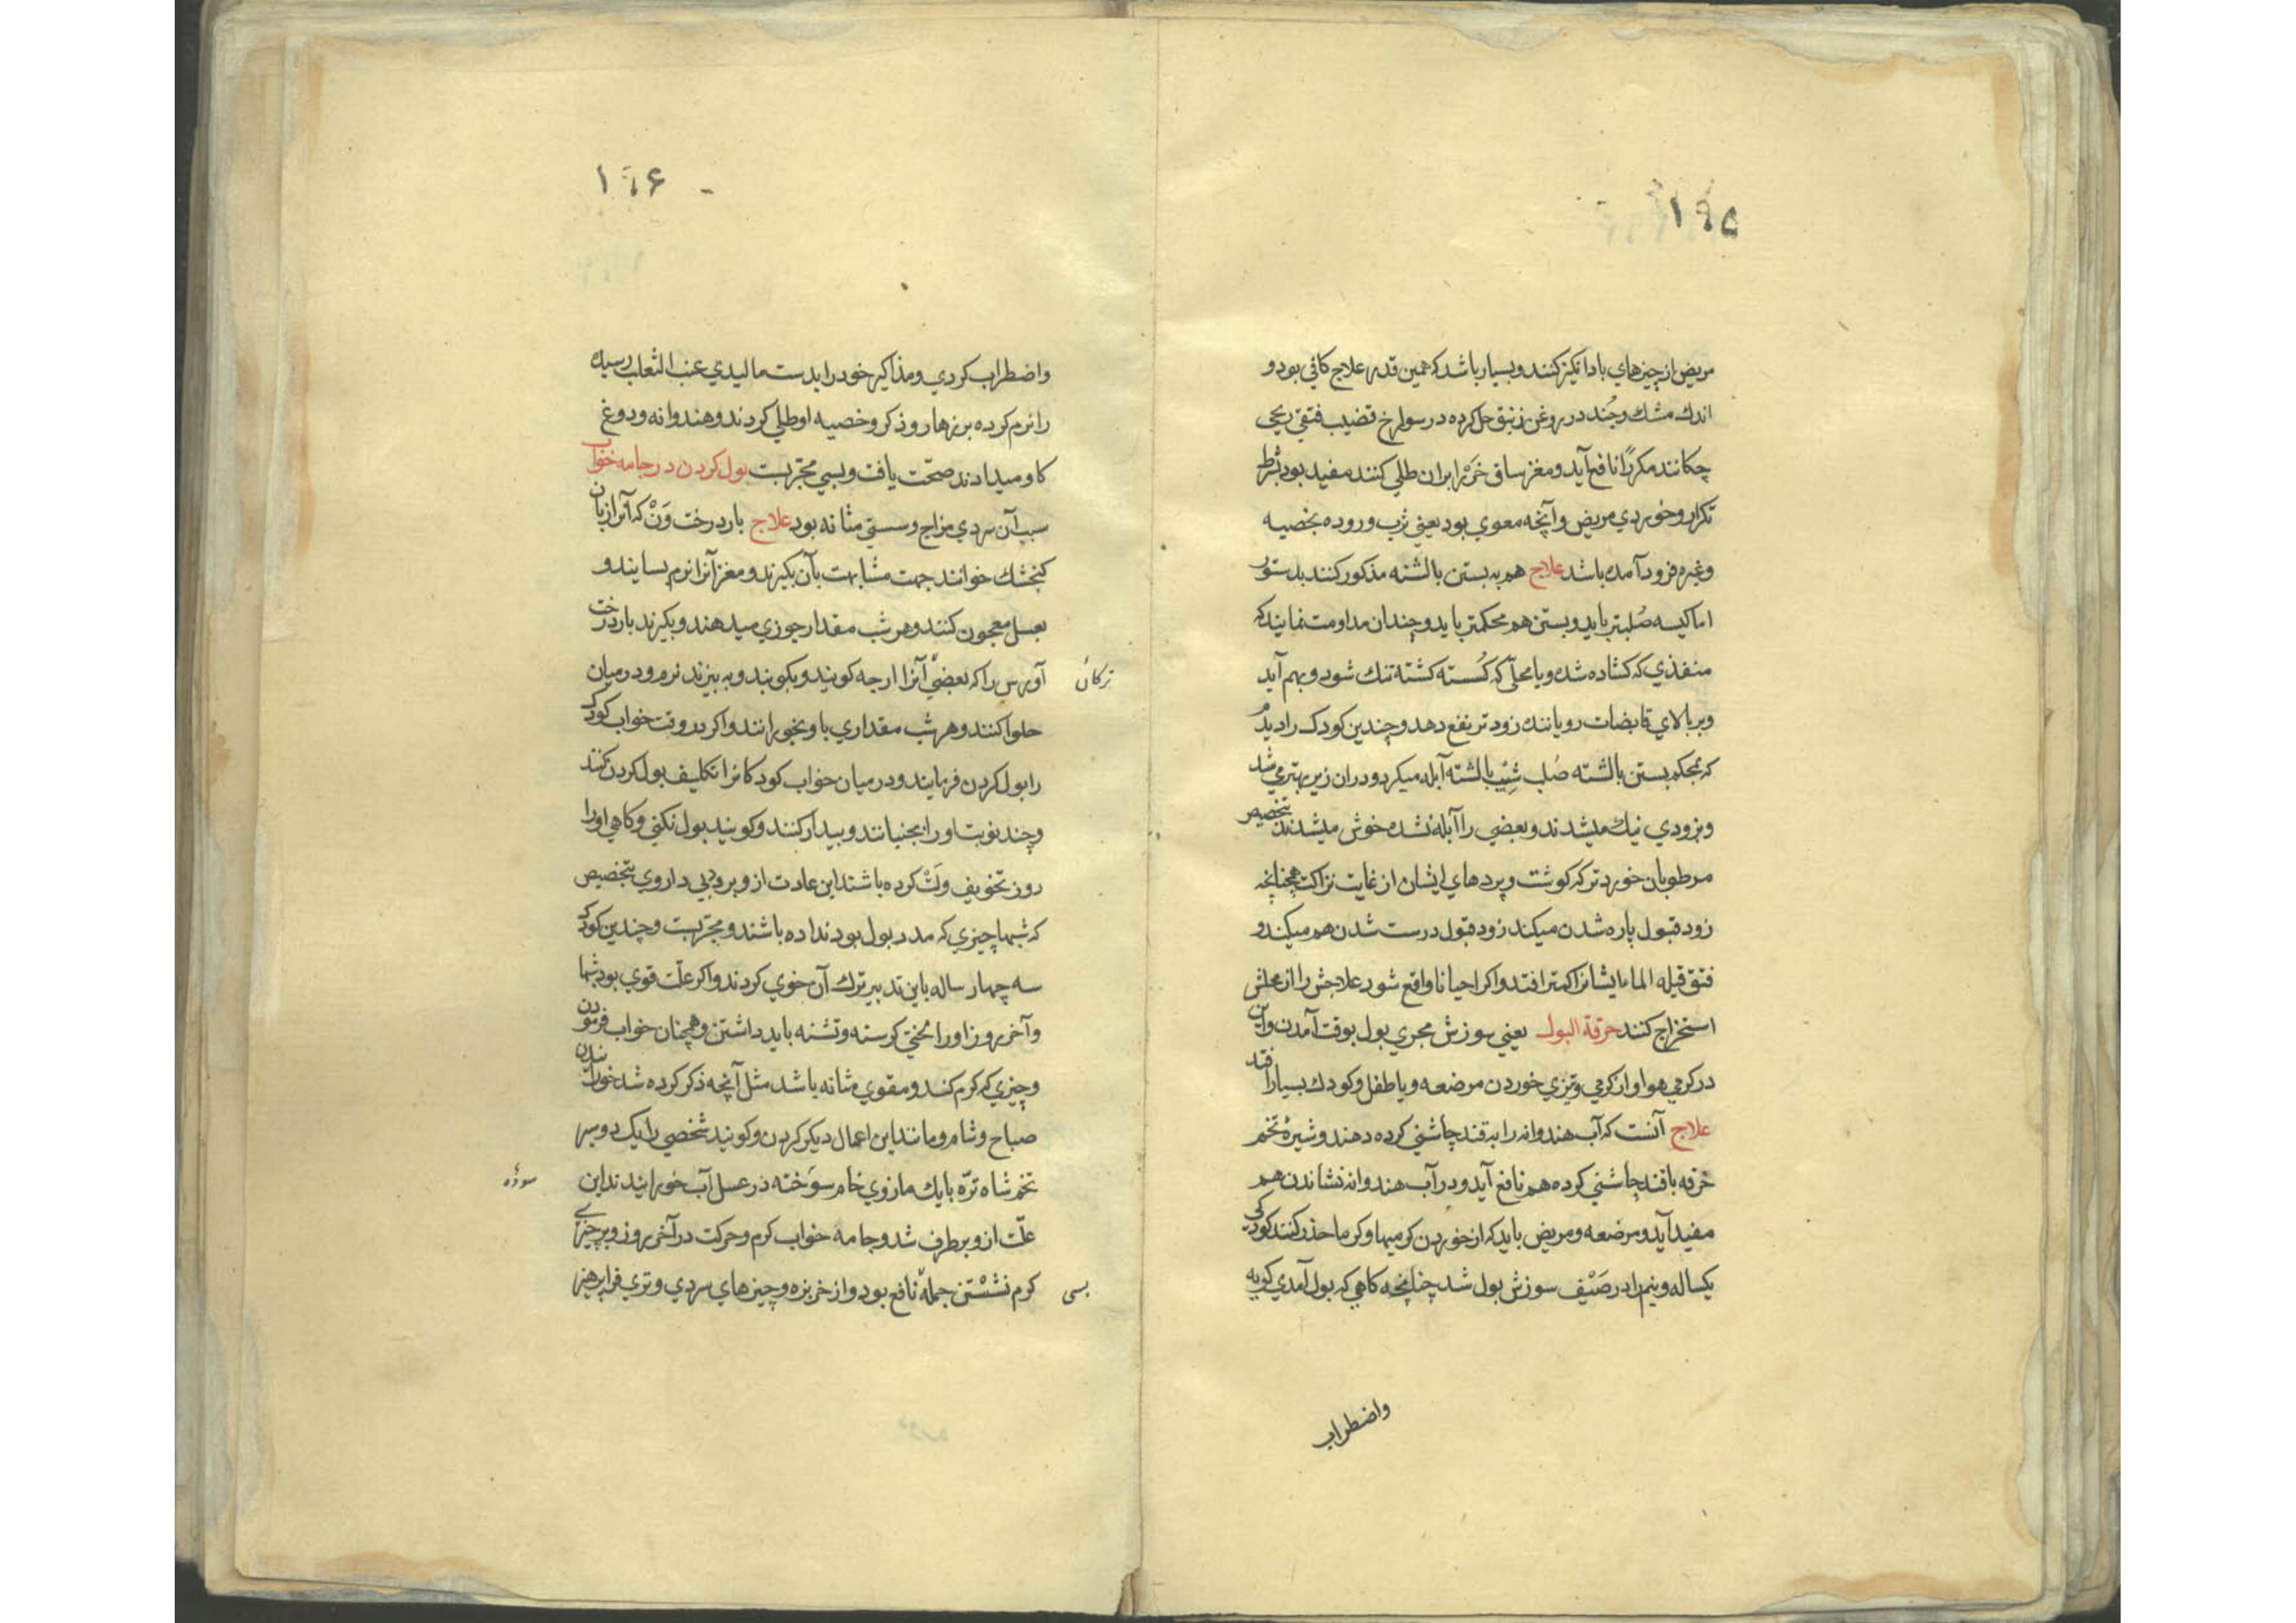 ۱۹۵
مریض از چیزهای باد انکیز کنند و بسیار باشد که همین قدر علاج کافی بود و
اندك مشك و جُند در روغن زنبق حل کرده در سولخ قضیب فتقی ریحی
چکانند مکررًا نافع آید و مغز ساق خَر را بران طلی کنند مفید بود بشرط
تکرار وخوردي مریض و آنچه معوی بود یعنی ثرب و روده بخصیه
وغیره فرود آمده باشد علاج هم به بستن بالشته مذکور کنند بدستور
اما کیسه صُلبتر باید و بستن هم محکمتر باید و چندان مداومت نمایند که
منفذي که کشاده شده و یا محلی که کُسسته کشته تنك شود و بهم آید
و بر بالای قابضات رویاننده زودتر نفع دهد و چندین کودك را دیدم
که بمحکم بستن بالشته صُلب شِیب بالشته آبله میکرد و دران زیر بهتر می شد
و بزودي نیك میشدند و بعضی را آبله نشده خوش میشدند بتخصیص
مرطوبان خوردتر که کوشت و پردهای ایشان از غایت نزاکت همچنانچه
زود قبول پاره شدن میکند زود قبول درست شدن هم میکند و
فتق قیله الماء ایشانرا کمتر افتد و اکر احیانا واقع شود علاجش را از محلش
استخراج کنند حرقة البول یعنی سوزش مجری بول بوقت آمدن و این
در کرمی هوا و از کرمی و تیزی خوردن مرضعه و یا طفل و کودك بسیار افتد
علاج آنست که آب هندوانه را به قند چاشنی کرده دهند و شیرهٔ تخم
خرفه با قند چاشنی کرده هم نافع آید و در آب هندوانه نشاندن هم
مفید آید و مرضعه و مریض باید که از خوردن کرمیها و کرما حذر کنند کودکی
یکساله و نیم را در صَیْف سوزش بول شد چنانچه کاهی که بول آمدي کریه
واضطراب
۱۹۶
واضطراب کردي و مذاکیر خود را بدست مالیدي عنب الثعلب رسیده
را نرم کرده بر زهار و ذکر و خصیه او طلی کردند و هندوانه و دوغ
کاو میدادند صحّت یافت و بسی مجرّبست بول کردن در جامه خواب
سبب آن سردي مزاج و سستی مثانه بود علاج بار درخت وَنْ که آنرا زبان
کنجشك خوانند جهت مشابهت بآن بکیرند و مغز آنرا نرم بسایند و
بعسل معجون کنند و هر شب مقدار جوزي میدهند و بکیرند بار درخت
آورس را که بعضی آنرا ارجه کویند و بکوبند و به بیزند نرم و در میان
ترکان
حلوا کنند و هر شب مقداري باو بخورانند و اکر در وقت خواب کودك
را بول کردن فرمایند و در میان خواب کودکانرا تکلیف بول کردن کنند
و چند نوبت او را بجنبانند و بیدار کنند و کویند بول نکنی و کاهی او را
روز تخویف ولَتْ کرده باشند این عادت از و برود بی داروی بتخصیص
که شبها چیزي که مدد بول بود نداده باشند و مجرّبست و چندین کودك
سه چهار ساله باین تدبیر ترك آن خوي کردند و اکر علّت قوي بود شبها
و آخر روز او را لختی کرسنه و تشنه باید داشتن و همچنان خواب فرمودن
و چیزي که کرم کند و مقوي مثانه باشد مثل آنچه ذکر کرده شد خورانیدن
صباح و شام و مانند این اعمال دیکر کردن و کویند شخصی را یك دو سر
تخم شاه ترّه با یك مازوي خام سوَخته در عسل آب خورانیدند این
سوده
علّت از و برطرف شد و جامه خواب کرم و حرکت در آخر روز و بر چیزهای
کرم نشَسْتن جمله نافع بود و از خربزه و چیزهای سردي و تري فزا پرهیز
بسی